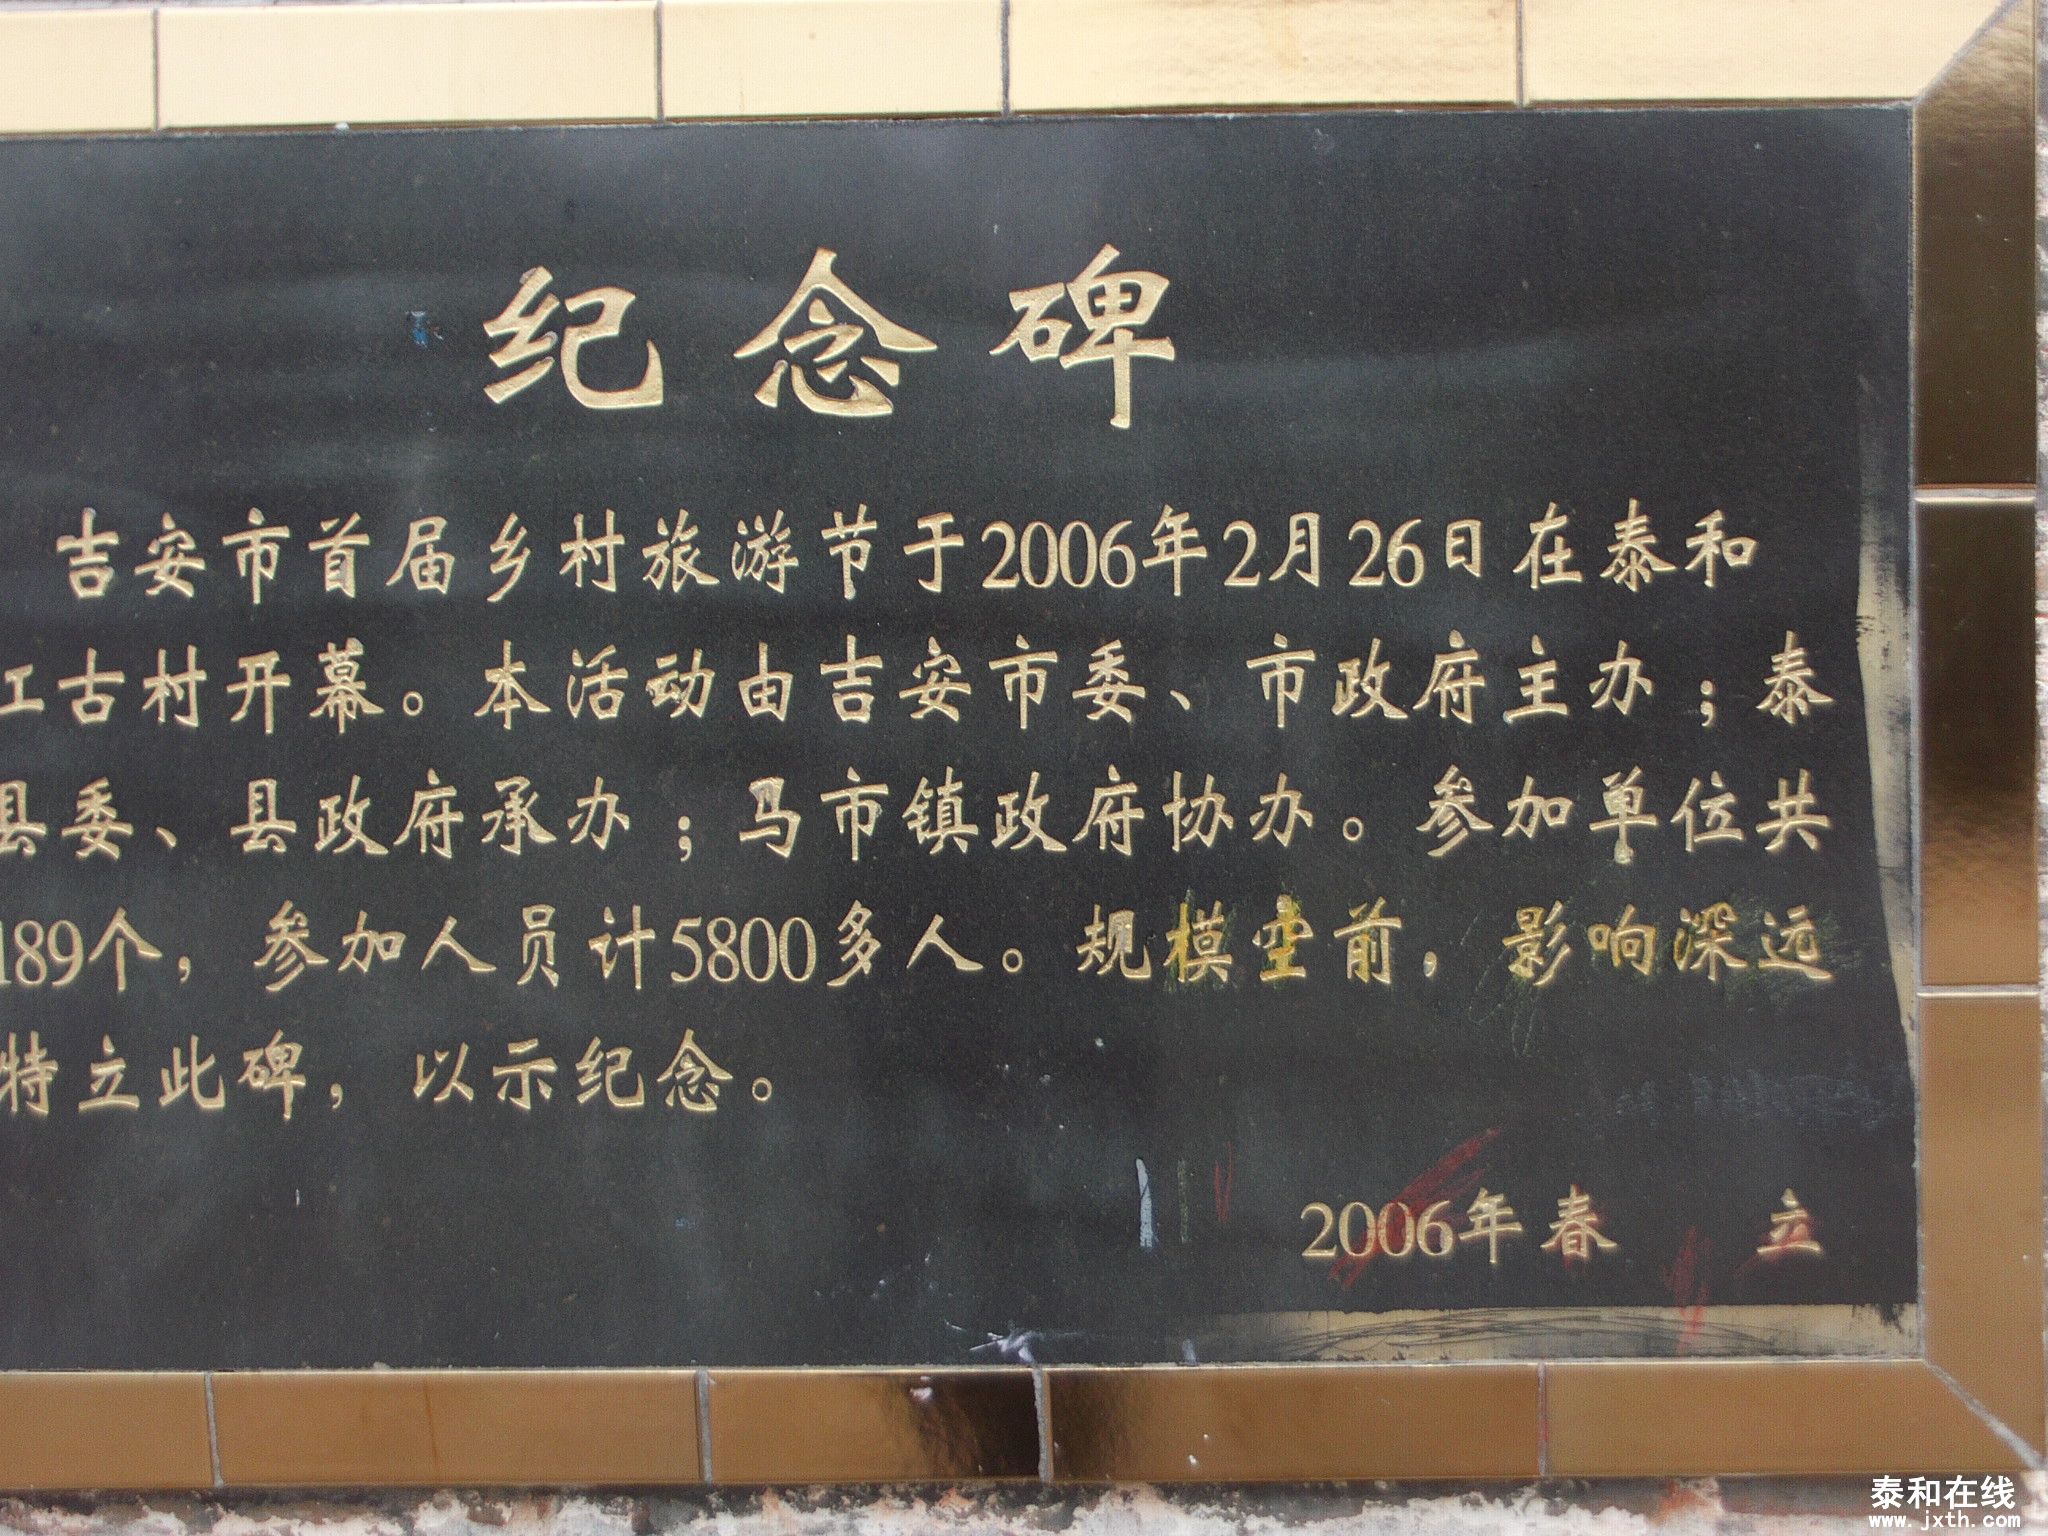 纪念碑
吉安市首届乡村旅游节于2006年2月26日在泰和
江古村开幕。本活动由吉安市委、市政府主办；泰
县委、县政府承办；马市镇政府协办。参加单位共
189个，参加人员计5800多人。规模空前，影响深远
特立此碑，以示纪念。
2006年春 立
泰和在线
www.jxth.com